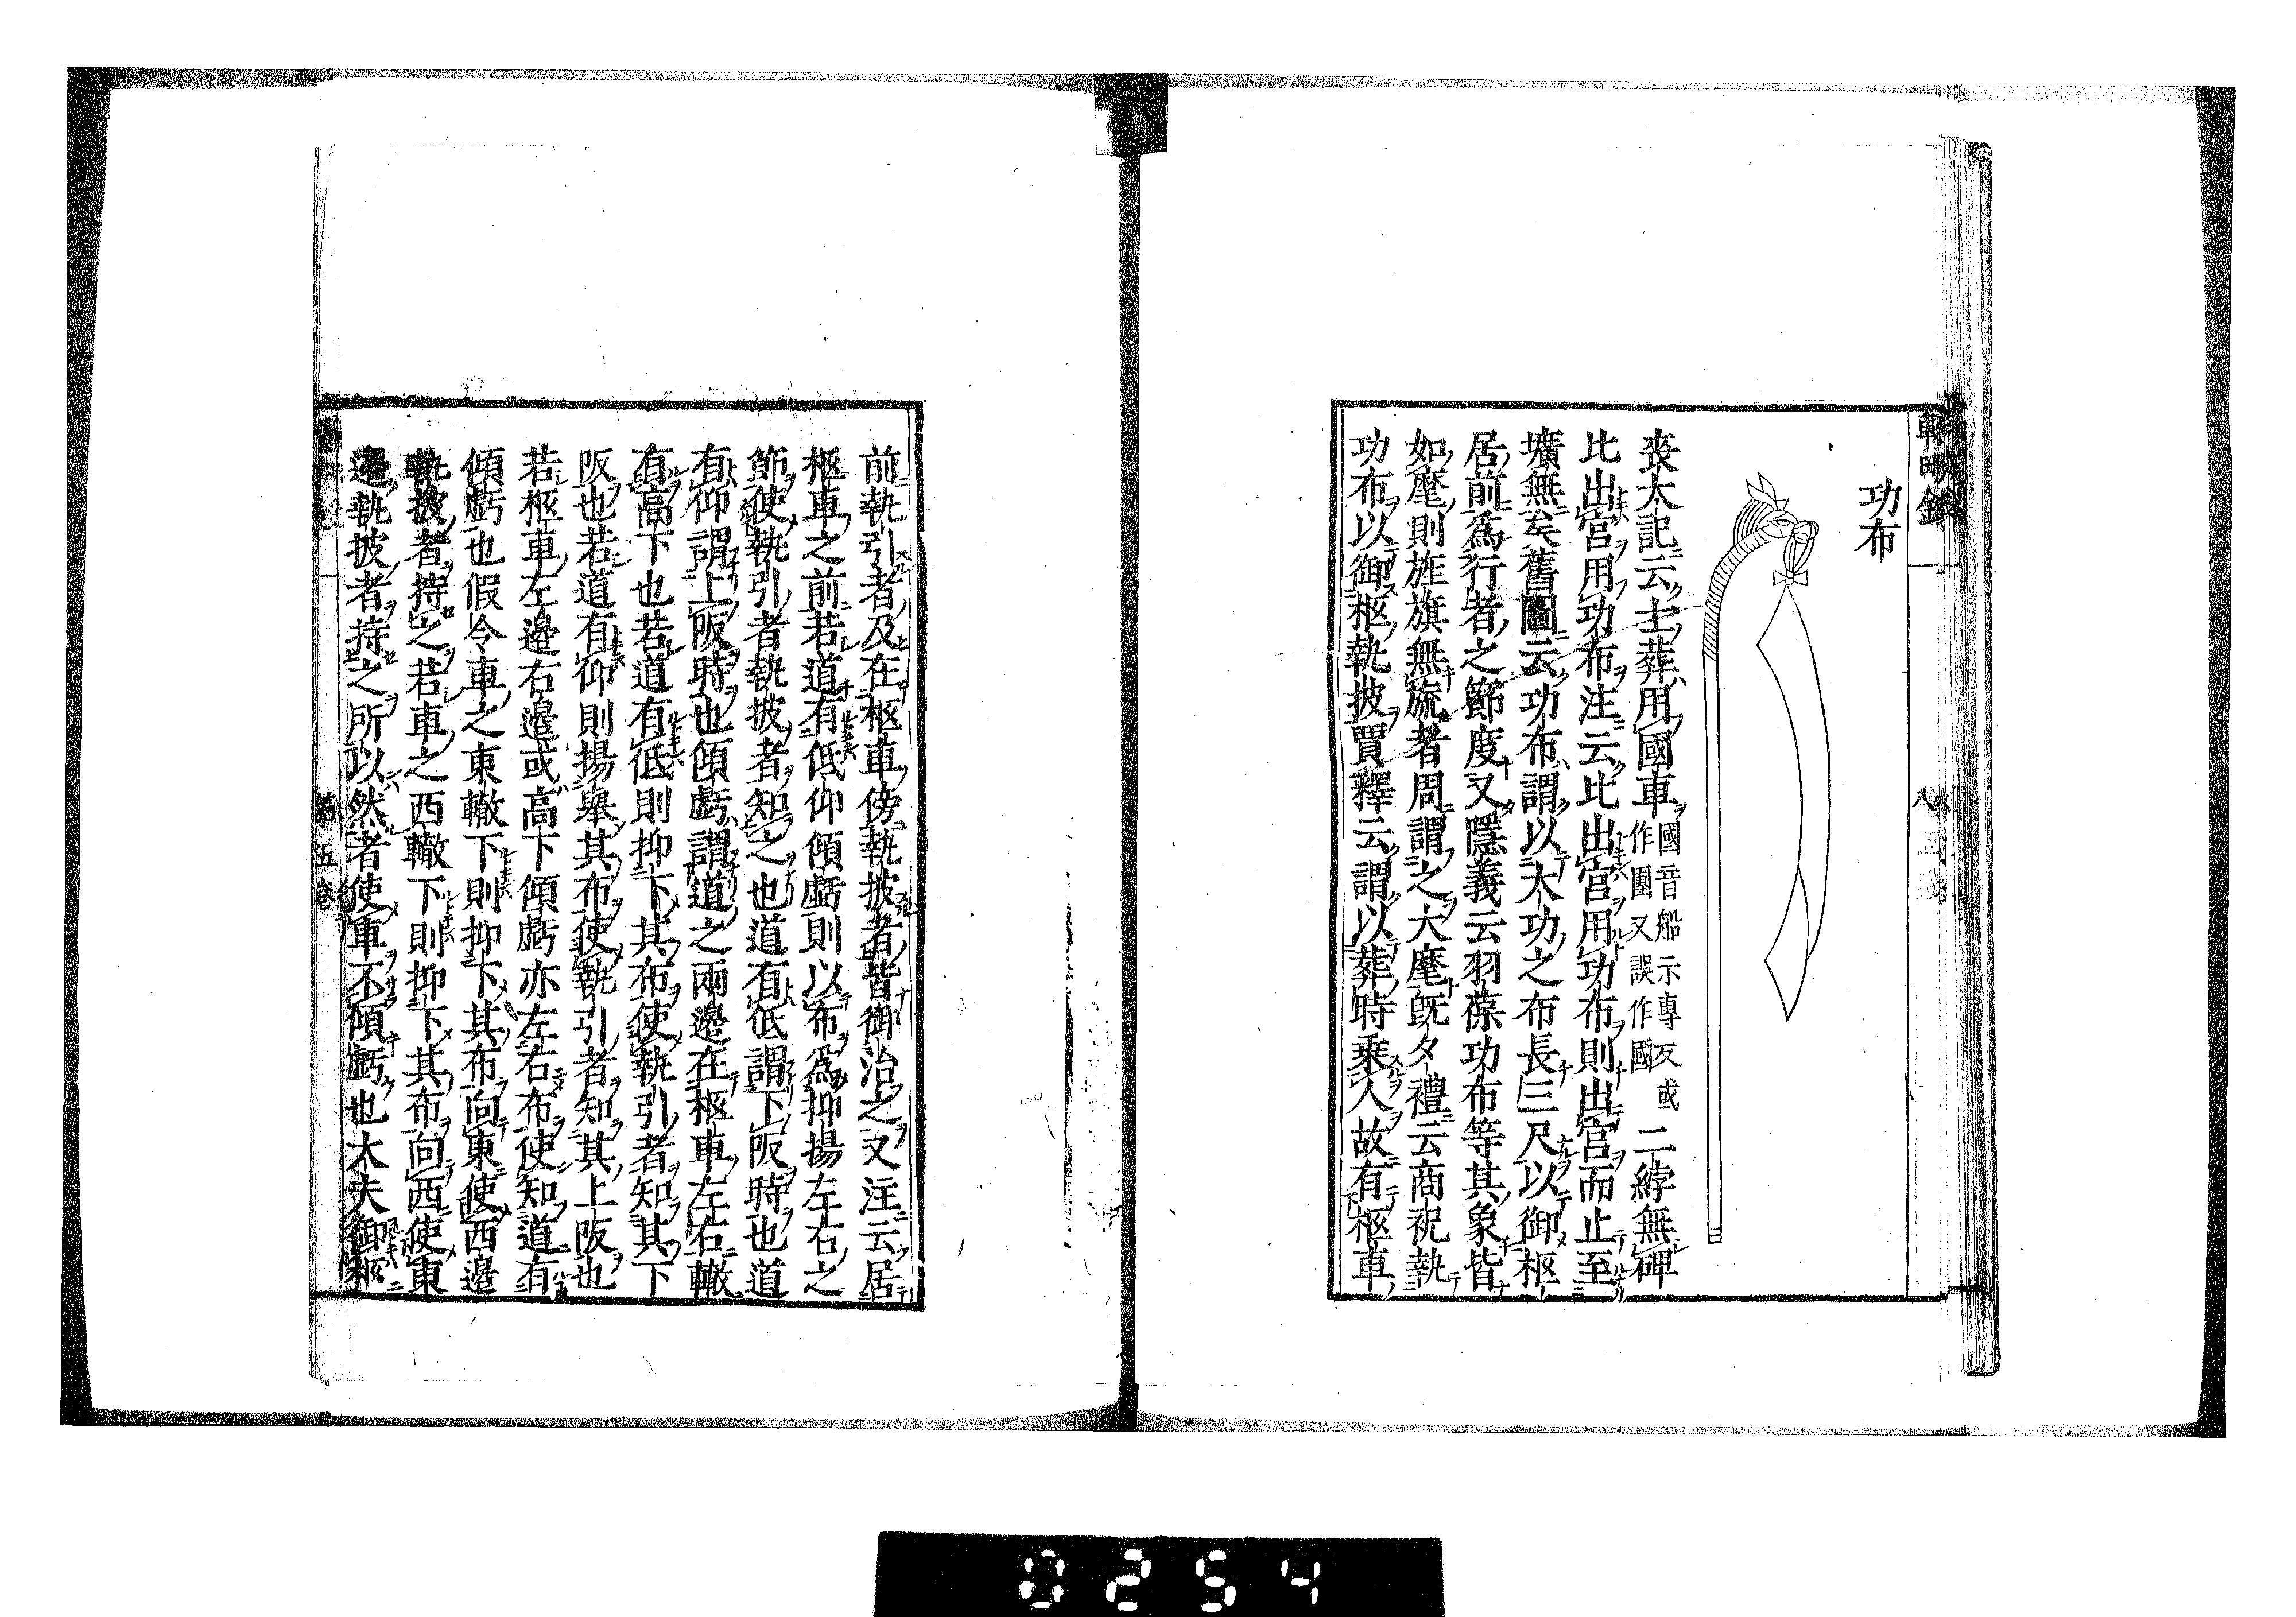 功布
喪大記云士葬用國車國音船示專反或作團又誤作國二綍無碑
比出宮用功布注云比出宮用功布則出宮而止至
壙無矣舊圖云功布謂以大功之布長三尺以御柩
居前爲行者之節度又隱義云羽葆功布等其象皆
如麾則旌旗無旒者周謂之大麾既夕禮云商祝執
功布以御柩執披賈釋云謂以葬時乘人故有柩車
八
前執引者及在柩車傍執披者皆御治之又注云居
柩車之前若道有低仰傾虧則以布爲抑揚左右之
節使執引者執披者知之也道有低謂下阪時也道
有仰謂上阪時也傾虧謂道之兩邊在柩車左右轍
有高下也若道有低則抑下其布使執引者知其下
阪也若道有仰則揚舉其布使執引者知其上阪也
若柩車左邊右邊或高下傾虧亦左右布使知道有
傾虧也假令車之東轍下則抑下其布向東使西邊
執披者持之若車之西轍下則抑下其布向西使東
邊執披者持之所以然者使車不傾虧也大夫御柩
第五卷
0254